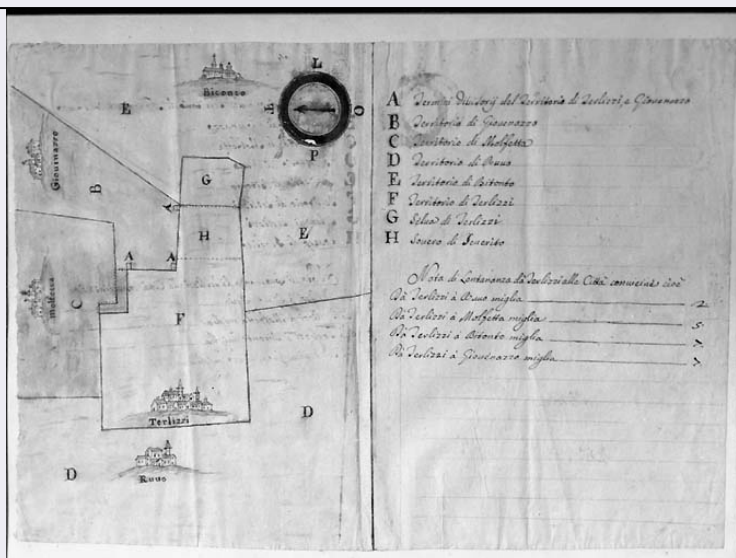 L
T
O
P
Bitonto
E
Giovenazzo
B
G
A
H
E
A
A
Molfetta
C
F
Terlizzi
D
D
Ruuo
A Termini divisorij del Territorio di Terlizzi, e Giovenazzo
B Territorio di Giovenazzo
C Territorio di Molfetta
D Territorio di Ruuo
E Territorio di Bitonto
F Territorio di Terlizzi
G Selva di Terlizzi
H
Nota di Lontananza da Terlizzi alle Città convicine cioè
Da Terlizzi à Ruuo miglia 2
Da Terlizzi à Molfetta miglia 5
Da Terlizzi à Bitonto miglia 7
Da Terlizzi à Giovenazzo miglia 7